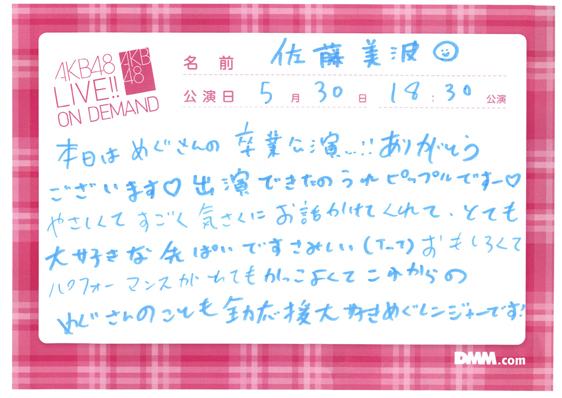 AKB48
LIVE!!
ON DEMAND
AKB
48
名前 佐藤美波
公演日 5月30日 18:30公演
本日はめぐさんの卒業公演…!!ありがとう
ございます♡出演できたのうれピップルですー♡
やさしくてすごく気さくにお話かけてくれて、とても
大好きな先ぱいですさみしい(T_T)おもしろくて
パフォーマンスがとてもかっこよくてこれからの
めぐさんのことも全力応援大好きめぐレンジャーです!
DMM.com